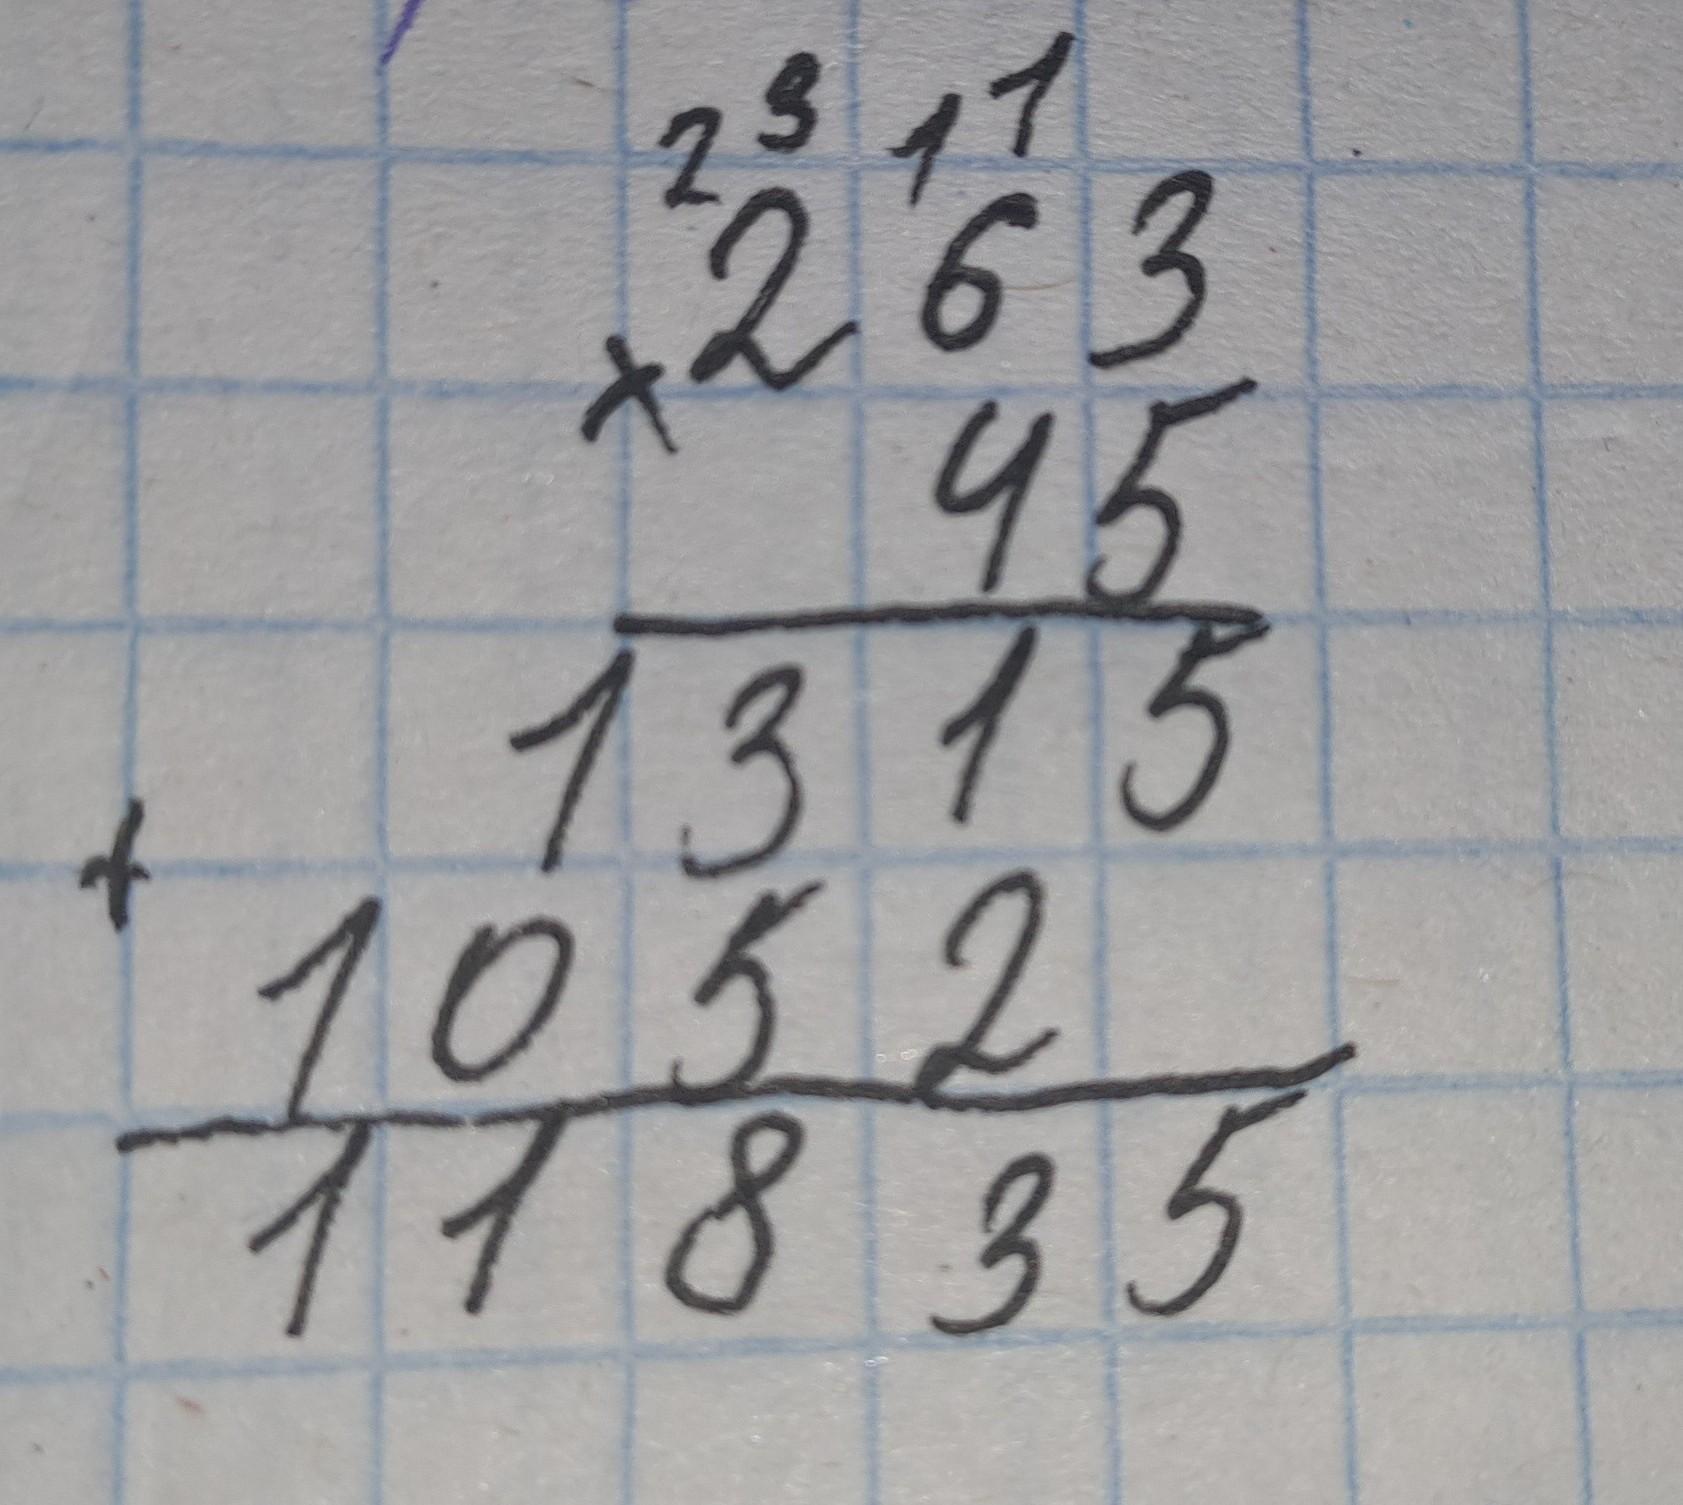 2 3 1 1
263
× 45
1315
+
1052
11835